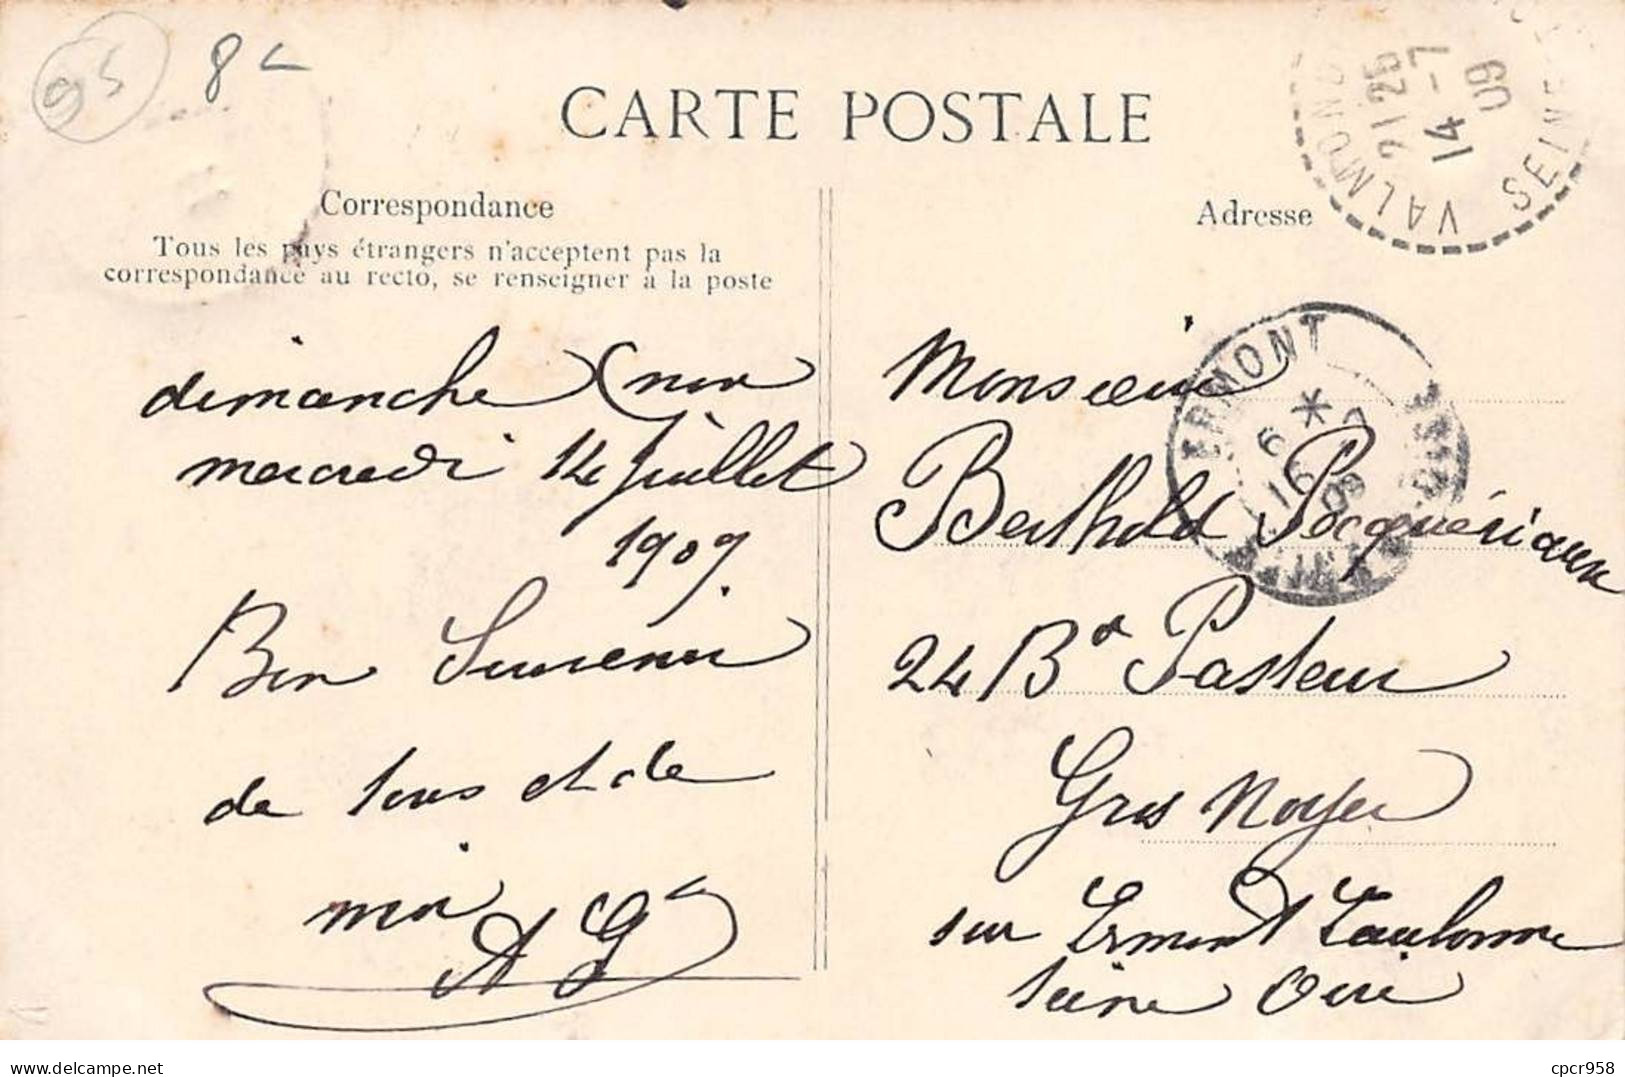 95
8
CARTE POSTALE
Correspondance
Tous les pays étrangers n'acceptent pas la
correspondance au recto, se renseigner à la poste
dimanche (non
mercredi 14 juillet
1909
Bon Souvenir
de tous et de
moi
A G
Adresse
Monsieur
Berthold Pocquériaux
24 Bd Pasteur
Gros Noyer
sur Ermont Eaubonne
Seine Oise
VALMONT SEINE
21 25
14 - 7
09
ERMONT
6 *
16 - 7
09
SEINE-ET-OISE
cpcr958